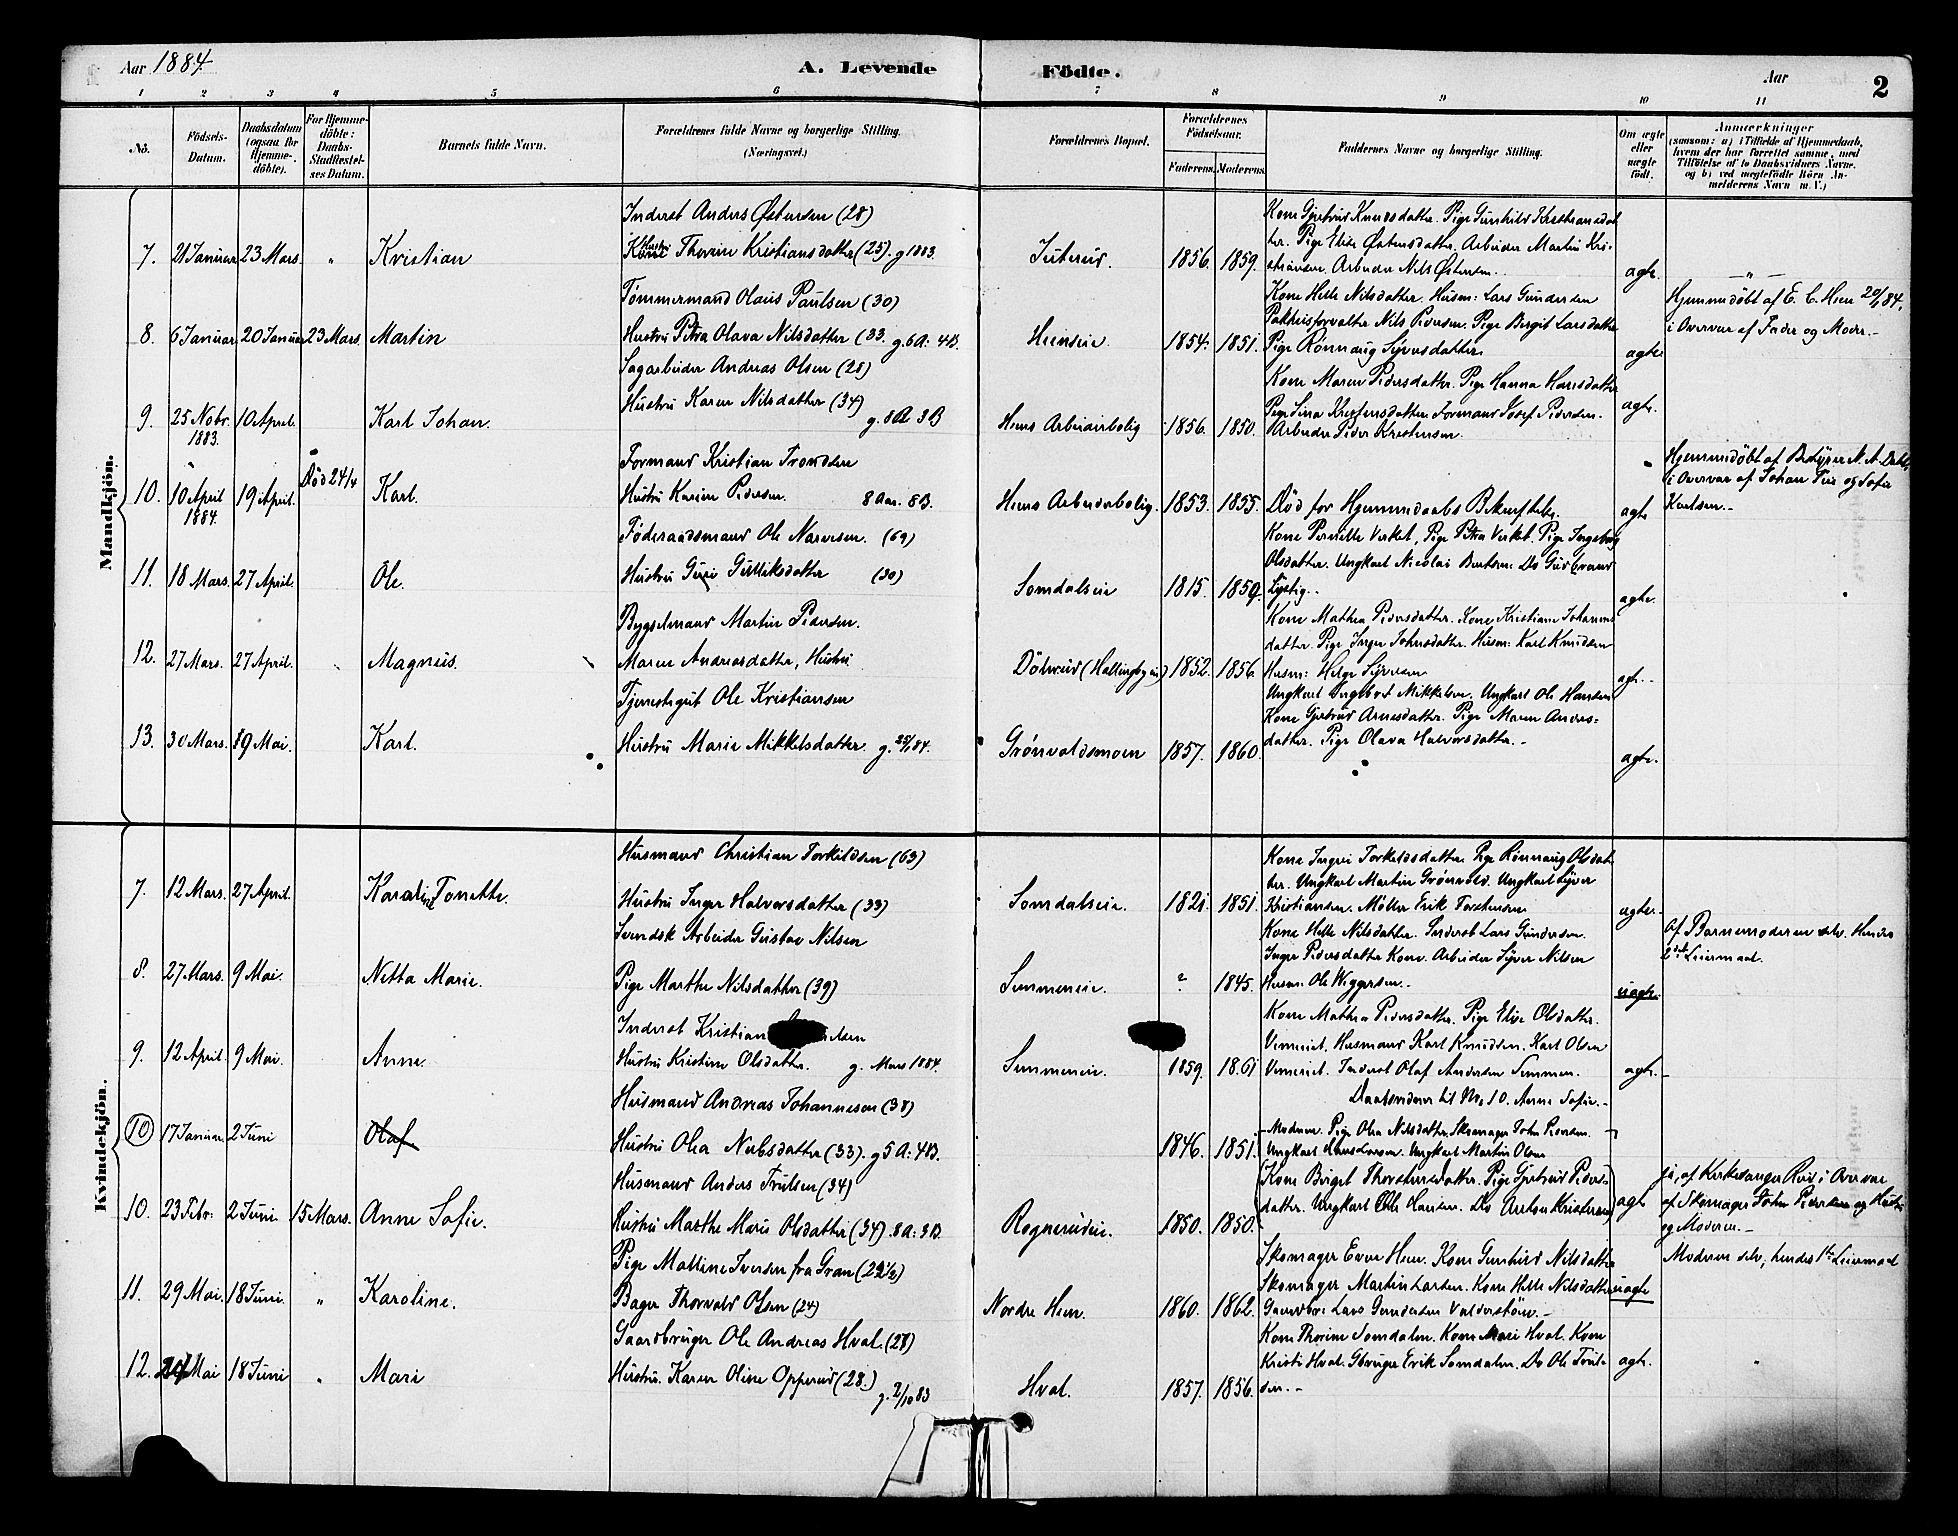 Aar 1884
A. Levende
Födte.
Aar
2
1 2 3 4 5 6 7 8 9 10 11
No.
Födsels-
Datum.
Daabsdatum
(ogsaa for
Hjemme-
döbte).
For Hjemme-
döbte:
Daabs-
Stadfæstel-
ses Datum.
Barnets fulde Navn.
Forældrenes fulde Navne og borgerlige Stilling.
(Næringsvei.)
Forældrenes Bopæl.
Forældrenes
Födselsaar.
Faderens. Moderens.
Faddernes Navne og borgerlige Stilling.
Om ægte
eller
uægte
födt.
Anmærkninger
(saasom: a) i Tilfælde af Hjemmedaab,
hvem der har forrettet samme, med
Tilföielse af to Daabsvidners Navne,
og b) ved uægtefödte Börn An-
melderens Navn m. V.)
Mandkjön.
Inderst Anders Østensen (28)
7. 21 Januar 23 Mars. " Kristian
Hustru Thorine Kristiansdatter (25). g 1883.
1856. 1859.
Kone Gjertrud Knudsdatter. Pige Gunhild Kristiansdat
ter. Pige Elise Østensdatter. Arbeider Martin Kri-
stiansen. Arbeider Nils Østensen.
ægte.
"
Tømmermand Olaus Paulsen (30)
8. 6 Januar 20 Januar 23 Mars. Martin
Hustru Petra Olava Nilsdatter (33. g. 6 A: 4B.
Heenseie. 1854. 1851.
Kone Helle Nilsdatter. Husm: Lars Gundersen
Pakhusforvalter Nils Pedersen. Pige Bergit Larsdatter
Pige Rønnaug Syversdatter.
ægte
Hjemmedøbt af E. C. Heen 20/1 84.
i Overvær af Fader og Moder.-
Sagarbeider Andreas Olsen (28)
9. 25 Nobr. 1883. 10 April. Karl Johan.
Hustru Karen Nilsdatter (34)
g. 8A 3B
Heens Arbeiderbolig 1856. 1850.
Kone Maren Pedersdatter. Pige Hanna Hansdatter
Pige Lina Kristensdatter. Formand Josef Pedersen.
Arbeider Peder Kristensen.
ægte.
Formand Kristian Trondsen
10. 10 April 1884. 19 April. Død 24/4 Karl.
Hustru Karine Pedersen. 8 Aar. 8B.
Heens Arbeiderbolig. 1853. 1855.
Død før Hjemmedaabs Bekræftelse.
ægte
Hjemmedøbt af Betyder N. A. Dahl,
i Overvær af Johan Frie og Sofie
Karlsen.-
Føderaadsmand Ole Narvesen. (69)
11. 18 Mars. 27 April. Ole.
Hustru Guri Gulliksdatter (30)
Somdalseie 1815. 1859.
Kone Pernille Verket, Pige Petra Verket. Pige Ingeborg
Olsdatter. Ungkarl Nicolai Berntsen. Do Gudbrand
Lystig.
ægte.
Bygselmand Martin Pedersen.
12. 27 Mars. 27 April. Magnus.
Maren Andreasdatter, Hustru
Dølerud (Hallingbyeie) 1852. 1856.
Kone Mathea Pedersdatter. Kone Kristiane Johannes
datter. Pige Inger Johnsdatter. Husm: Karl Knudsen
Husm: Helge Syversen
ægte.
Tjenestegut Ole Kristiansen
13. 30 Mars. 9 Mai. Karl.
Hustru Marie Mikkelsdatter. g. 25/1 84.
Grønvoldsmoen 1857. 1860.
Ungkarl Ingebret Mikkelsen. Ungkarl Ole Hansen
Kone Gjertrud Arnesdatter. Pige Maren Andreas-
datter. Pige Olava Halvorsdatter.-
ægte.
Kvindekjön.
Husmand Christian Torkildsen (63)
7. 12 Mars. 27 April. Karoline Tonette.
Hustru Inger Halvorsdatter (33)
Somdalseie. 1821. 1851.
Kone Ingri Torkildsdatter. Pige Rønnaug Olsdat
ter. Ungkarl Martin Grønvold. Ungkarl Syver
Kristiansen. Møller Erik Torstensen
ægte.
Svendsk Arbeider Gustav Nilsen
8. 27 Mars. 9 Mai. Netta Marie.
Pige Marthe Nilsdatter (39)
Semmeneie. ? 1845.
Kone Helle Nilsdatter. Inderst Lars Gundersen.
Inger Pedersdatter Kone. Arbeider Syver Nilsen
Husm: Ole Wiggersen.-
uægte.
Af Barnemoderen selv. Hendes
2det Leiermaal.
Inderst Kristian
9. 12 April. 9 Mai. Anne.
Hustru Kristine Olsdatter. g. Mars 1884.
Semmeneie. 1859. 1861
Kone Mathea Pedersdatter. Pige Elise Olsdatter.
Vemeeiet. Husmand Karl Knudsen. Karl Olsen
Vemeeiet. Inderst Olaf Andersen Semmen.
ægte.
Daabsvidner til No 10. Anne Sofie.-
Husmand Andreas Johannesen (38)
10 17 Januar. 2 Juni Olaf
Hustru Olea Nielsdatter (33). g 5 A: 4B.
1846. 1851.
Moderen. Pige Olea Nilsdatter. Skomager John Pedersen.
Ungkarl Hans Larsen. Ungkarl Martin Olsen
Husmand Anders Trulsen (34)
10. 23 Febr: 2 Juni. 15 Mars. Anne Sofie.
Hustru Marthe Marie Olsdatter (34). 8 A: 3B.
Rognerudeie. 1850. 1850.
Kone Birgit Thorstensdatter. Pige Gjertrud Peders-
datter. Ungkarl Ole Hansen. Do Anton Kristensen
ægte
Ja, af Kirkesanger Rud, i Overvær
af Skomager John Pedersen og Hustru
og Moderen.-
Pige Mattine Iversen fra Gran (22 1/2)
11. 29 Mai. 18 Juni. " Karoline.
Bager Thorvald Olsen (24)
Nordre Heen. 1860. 1862.
Skomager Even Heen. Kone Gunhild Nilsdatter
Skomager Martin Larsen. Kone Helle Nilsdatter
Gaardbr: Lars Gundersen
uægte
Moderen selv, hendes 1ste Leiermaal
Gaardbruger Ole Andreas Hval. (28)
12. 24 Mai 18 Juni " Mari
Hustru. Karen Oline Opperud (28.)
g. 2/10 83
Hval. 1857. 1856.
Kone Thorine Somdalen. Kone Mari Hval. Kone
Kristi Hval. Gbruger Erik Somdalen. Do Ole Trul-
sen.-
ægte.
"